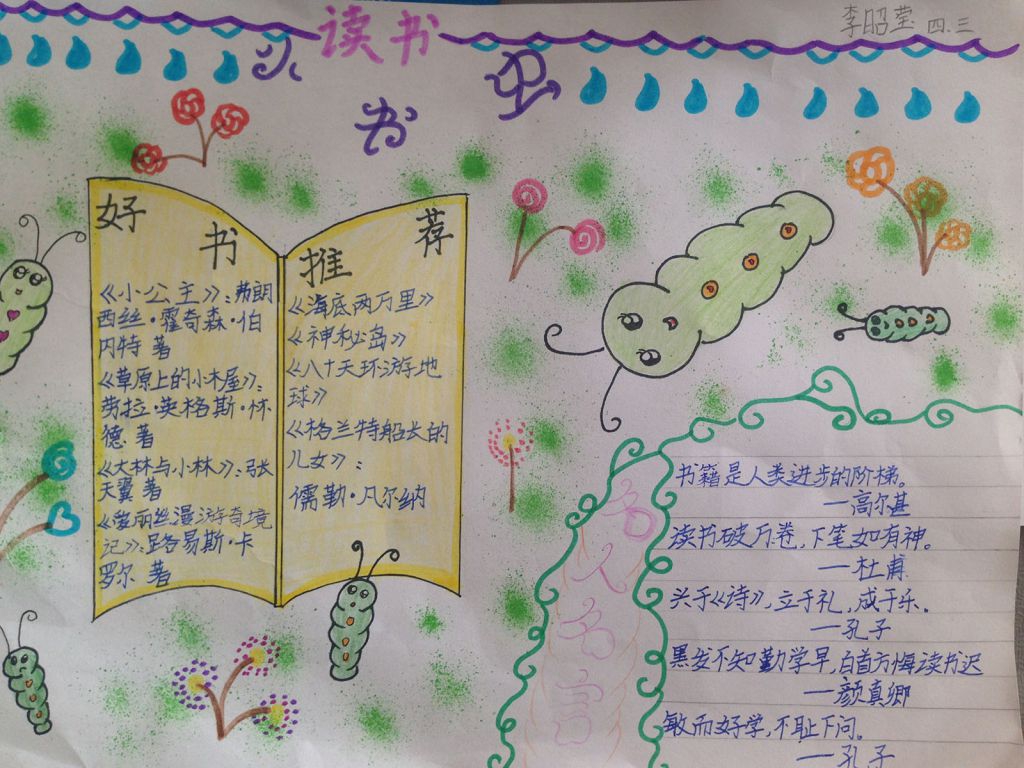 李昭莹 四.三
读书
小
书
虫
好
书
《小公主》:弗朗
西丝·霍奇森·伯
内特 著
《草原上的小木屋》:
劳拉·英格斯·怀
德 著
《大林与小林》:张
天翼 著
《爱丽丝漫游奇境
记》:路易斯·卡
罗尔 著
推
荐
《海底两万里》
《神秘岛》
《八十天环游地
球》
《格兰特船长的
儿女》:
儒勒·凡尔纳
名人名言
书籍是人类进步的阶梯。
—高尔基
读书破万卷,下笔如有神。
—杜甫
兴于《诗》,立于礼,成于乐。
—孔子
黑发不知勤学早,白首方悔读书迟
—颜真卿
敏而好学,不耻下问。
—孔子